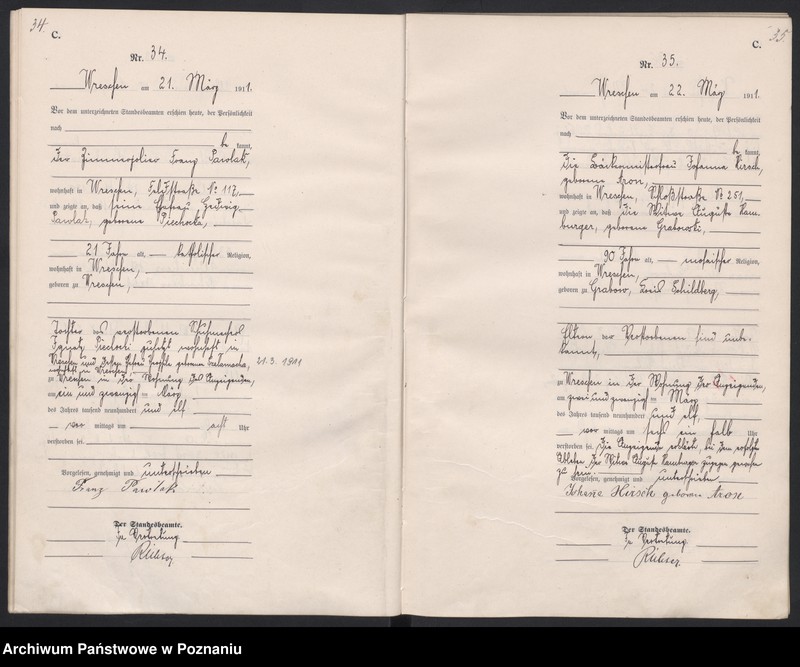 34.
C.
Nr. 34.
Wreschen am 21. März 1911.
Vor dem unterzeichneten Standesbeamten erschien heute, der Persönlichkeit
nach
be kannt,
der Zimmerpolier Franz Pawlak,
wohnhaft in Wreschen, Feldstraße No 117,
und zeigte an, daß seine Ehefrau Hedwig
Pawlak, geborene Piechocka,
21 Jahre alt, katholischer Religion,
wohnhaft in Wreschen,
geboren zu Wreschen,
Tochter des verstorbenen Schuhmachers
Ignatz Piechocki zuletzt wohnhaft in
Wreschen und dessen Ehefrau geborene
wohnhaft in Wreschen 21.3.1911
zu Wreschen in der Wohnung des Anzeigenden,
am ein und zwanzigsten März
des Jahres tausend neunhundert und elf
vor mittags um acht Uhr
verstorben sei.
Vorgelesen, genehmigt und unterschrieben
Franz Pawlak
Der Standesbeamte.
In Vertretung
35.
C.
Nr. 35.
Wreschen am 22. März 1911.
Vor dem unterzeichneten Standesbeamten erschien heute, der Persönlichkeit
nach
be kannt,
die Bäckermeisterfrau Johanna Hirsch,
geborene Aron,
wohnhaft in Wreschen, Schloßstraße No 251,
und zeigte an, daß die Witwe Auguste Ham-
burger, geborene Grabowski,
90 Jahre alt, mosaischer Religion,
wohnhaft in Wreschen,
geboren zu Grabow, Kreis Schildberg,
Eltern der Verstorbenen sind unbe-
kannt,
zu Wreschen in der Wohnung der Anzeigenden,
am zwei und zwanzigsten März
des Jahres tausend neunhundert und elf,
vor mittags um sechs ein halb Uhr
verstorben sei. Die Anzeigende erklärte, bei dem erfolgten
Ableben der Witwe Auguste Hamburger zugegen gewesen
zu sein.
Vorgelesen, genehmigt und unterschrieben
Hirsch geboren
Der Standesbeamte.
In Vertretung
Archiwum Państwowe w Poznaniu